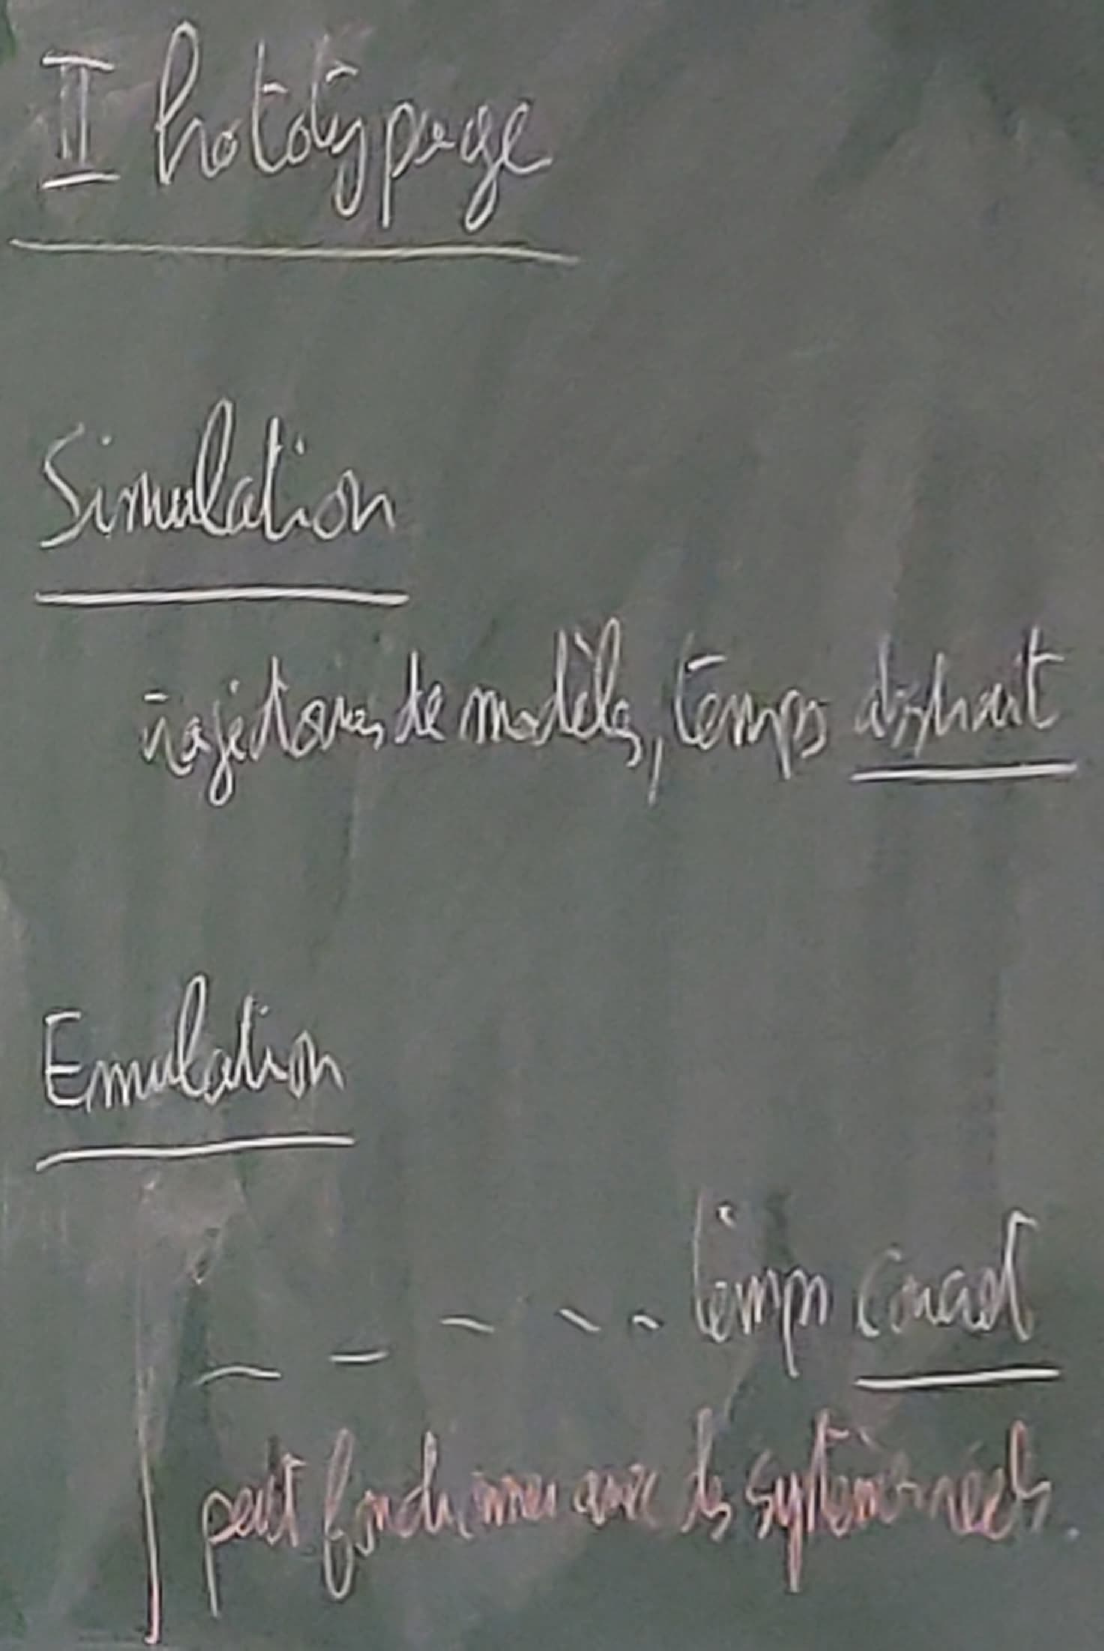 II Prototypage
Simulation
trajectoires de modèles, temps abstrait
Emulation
_ _ _ _ _ temps concret
peut fonctionner avec des systèmes réels.